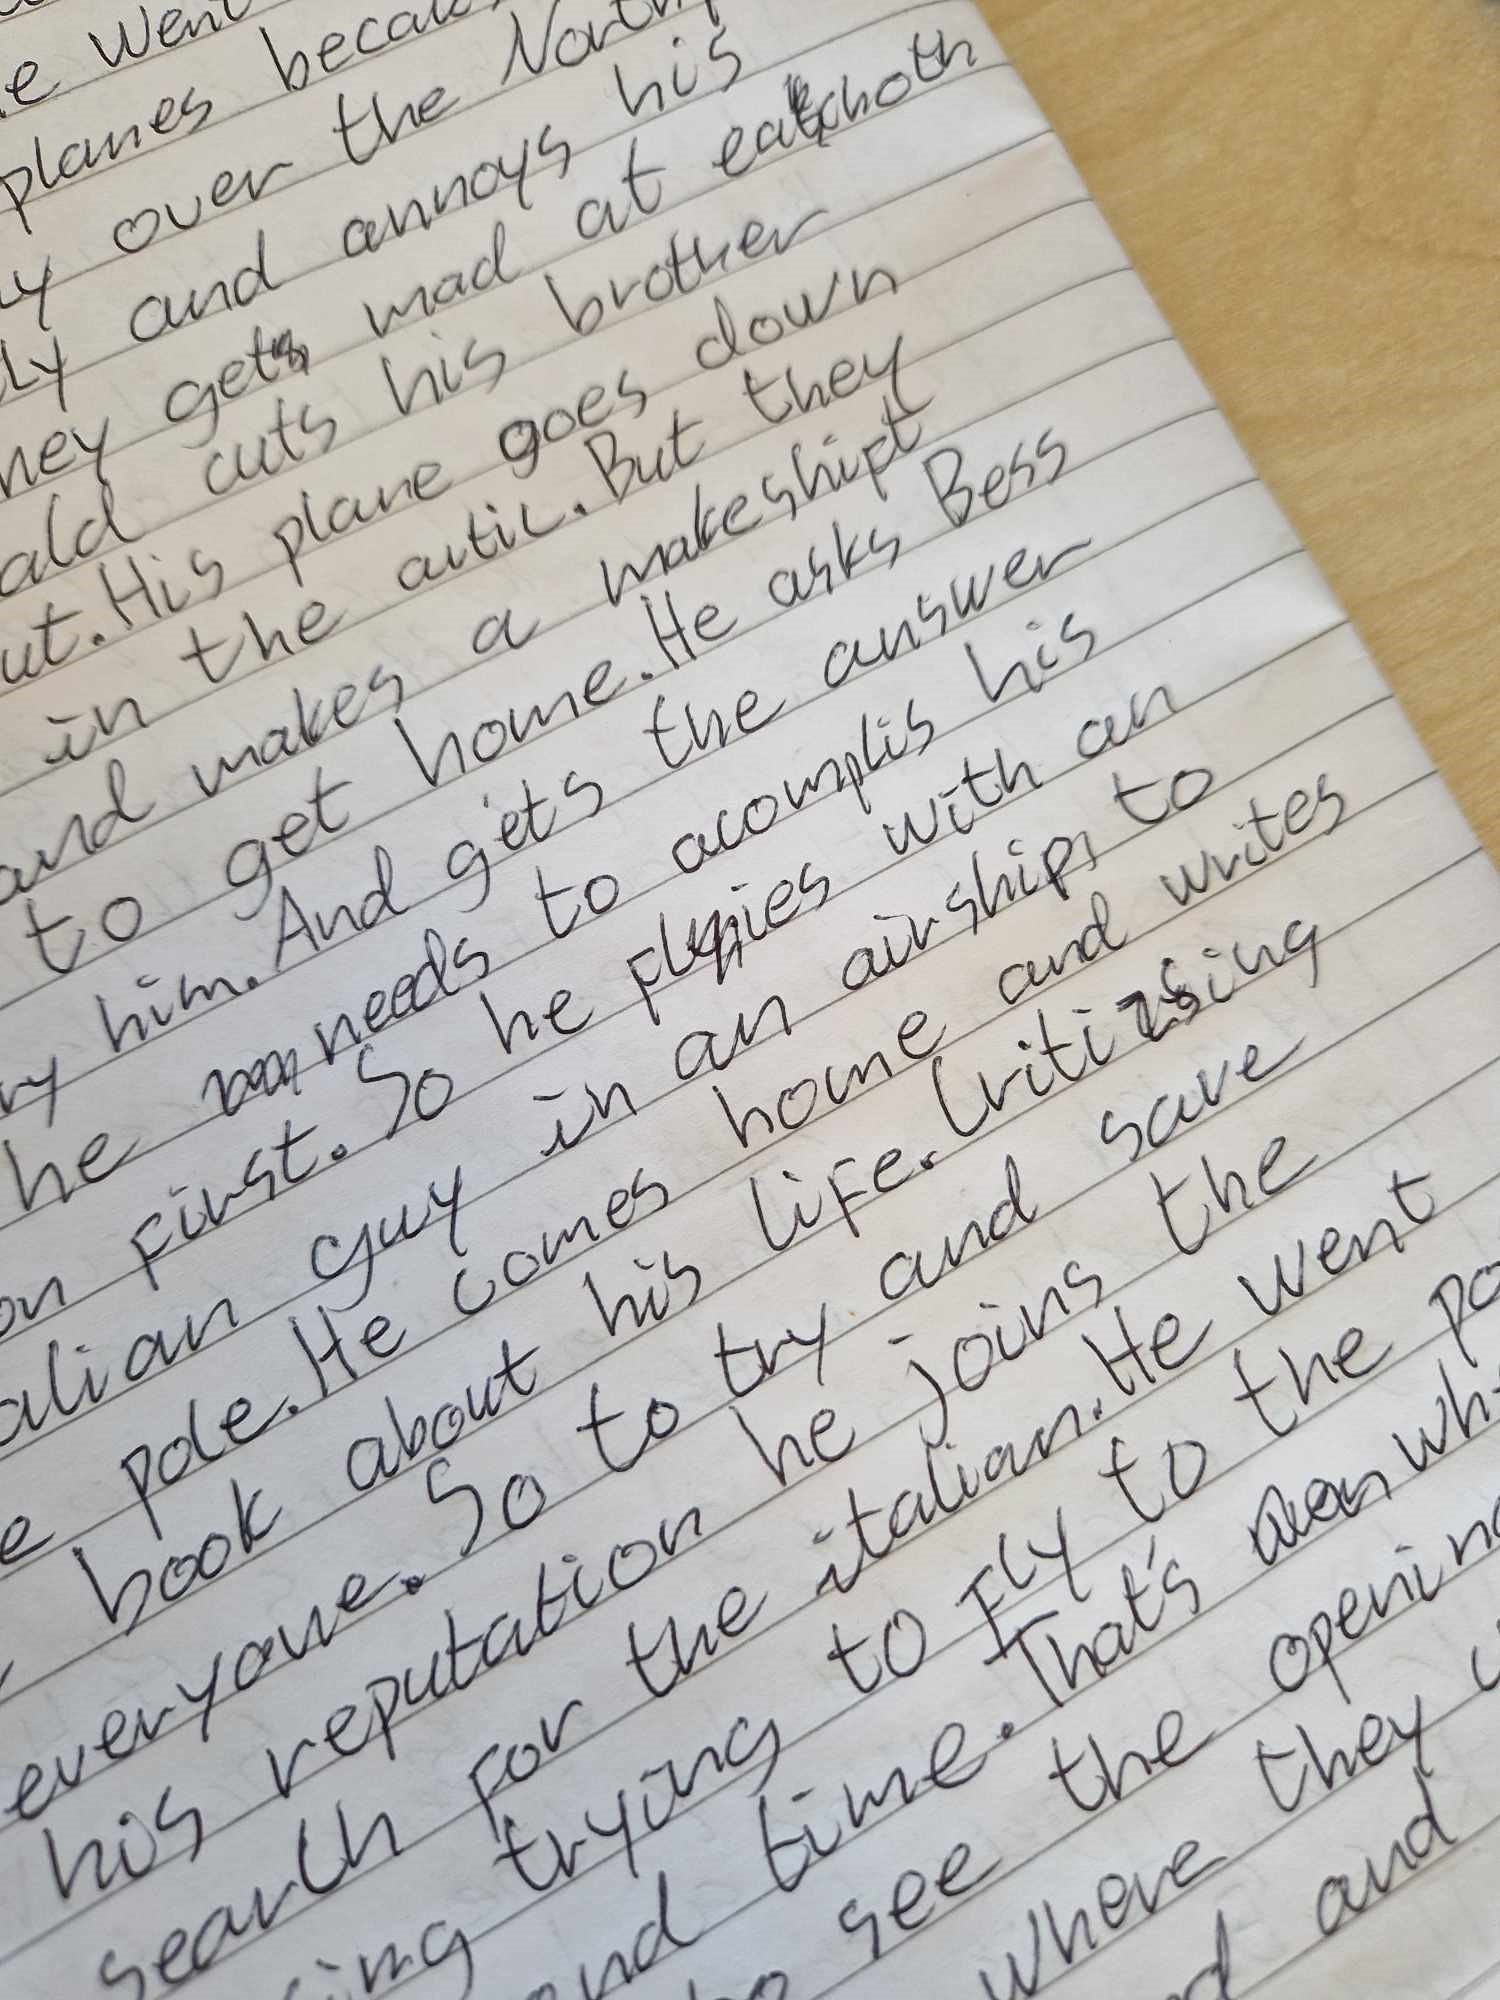 e went
planes becau
y over the North
ly and annoys his
hey gets mad at eachoth
ald cuts his brother
ut. His plane goes down
in the artic. But they
and makes a makeshipt
to get home. He asks Bess
ry him. And gets the answer
he needs to acomplis his
on first. So he flies with an
alian guy in an airship, to
e pole. He comes home and writes
book about his life. Critizising
everyone. So to try and save
his reputation he joins the
search for the italian. He went
ing trying to fly to the po
ond time. That's when wh
to see the opening
where they
d and